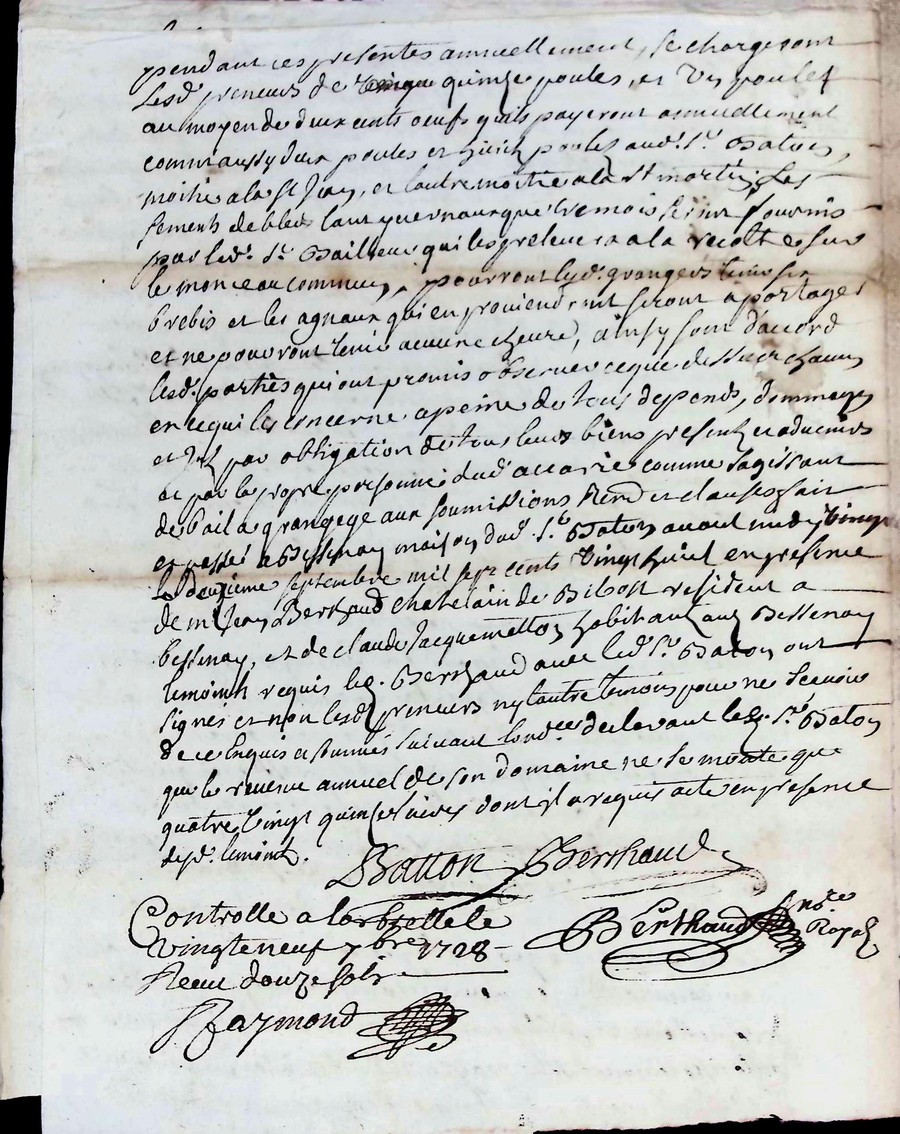 pendant ces presentes annuellement, se chargeront
lesd. preneurs de quinze poules, et Un poulet
au moyen de deux cents oeufs quils payeront annuellement
comm aussy deux poules et huict poulets aud. Sr. Batton,
moitié a la St Jean, et lautre moitie a la St martin, Les
semences de bleds tant yvernaux que tremois seront fournis
par led. Sr. Bailleur qui les prelevera a la recolte sur
le monceau commun, pourront lesd. grangers tenir six
brebis et les agnaux qui en proviendront seront a partager
et ne pourront tenir aucune chevre, ainsy sont d'accord
lesd. parties qui ont promis observer ce que dessus chacun
en ce qui les concerne a peine de tous depends, dommages
et Jnts par obligation de tous leurs biens presents et advenirs
et par la propre personne dud. accarie comme sagissant
de bail a grangege aux soumissions Rend et clauses fait
et passé a Bessenay maison dud. Sr. Baton avant midy Vingt
le deuxieme septembre mil sept cents Vingt huict en presence
de mr Jean Berthaud Chatelain de Bibost resident a
bessenay, et de claude Jacquemetton habitant aud Bessenay
temoins requis led. Berthaud avec led. Sr. Baton ont
signés et non lesd. preneurs ny lautre temoin pour ne scavoir
de ce Enquis et sommés suivant lord.ce declarant led. Sr. Baton
que le revenu annuel de son domaine ne se monte que
quatre Vingt quinze livres dont il a requis acte en presence
desd. temoins.
Batton Berthaud
Controlle a larbrelle le
Vingt neuf 7bre 1728
Berthaud nre Royal
Receu douze sols
Raymond